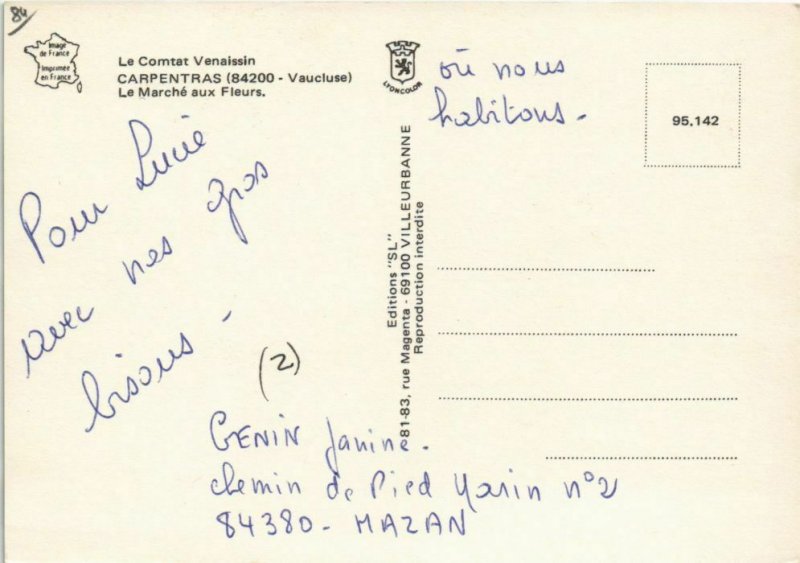 84
Image
de France
Imprimée
en France
Le Comtat Venaissin
CARPENTRAS (84200 - Vaucluse)
Le Marché aux Fleurs.
Pour Lucie
avec nos gros
bisous -
(2)
GENIN Janine.
chemin de Pied Marin n°2
84380 - MAZAN
LYONCOLOR
où nous
habitons -
95.142
Editions "SL"
81-83, rue Magenta - 69100 VILLEURBANNE
Reproduction interdite